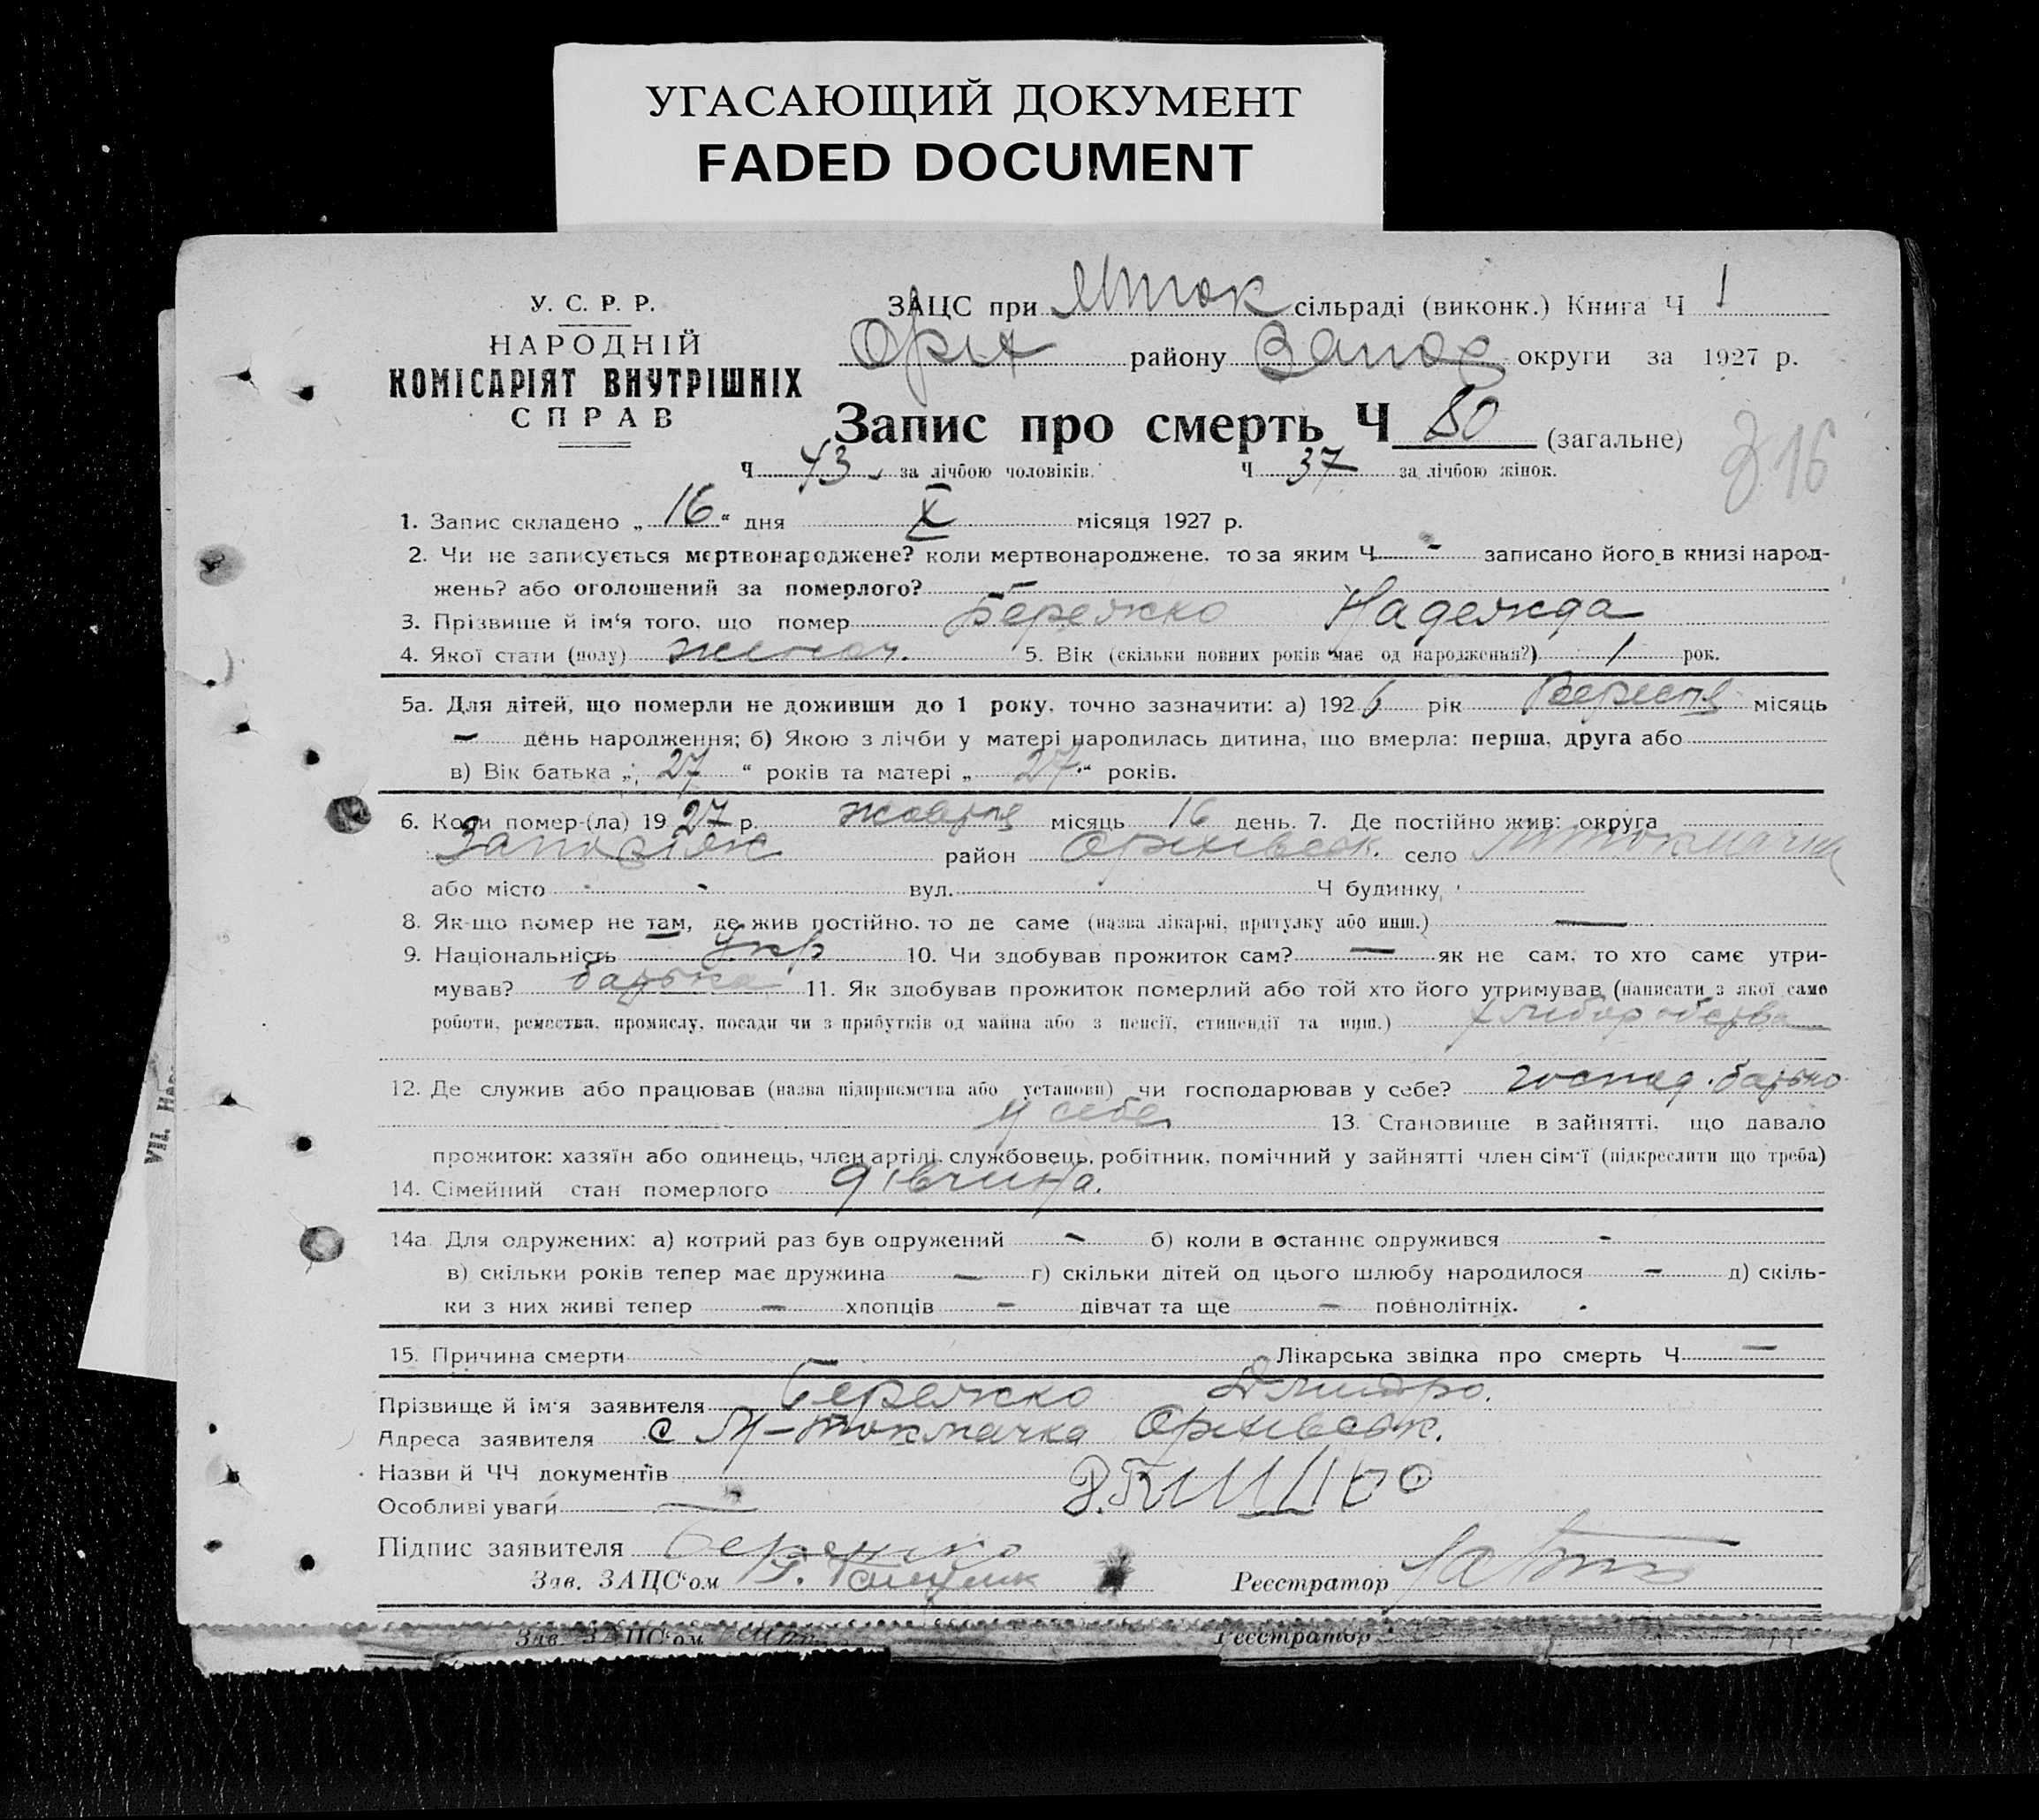 УГАСАЮЩИЙ ДОКУМЕНТ
FADED DOCUMENT
У. С. Р. Р.
НАРОДНІЙ
КОМІСАРІЯТ ВНУТРІШНІХ
СПРАВ
ЗАЦС при Мток сільраді (виконк.) Книга Ч 1
Оріх району Запор округи за 1927 р.
Запис про смерть Ч 80 (загальне)
Ч 43 за лічбою чоловіків. Ч 37 за лічбою жінок.
16
1. Запис складено „ 16 “ дня X місяця 1927 р.
2. Чи не записується мертвонароджене? коли мертвонароджене, то за яким Ч - записано його в книзі народ-
жень? або оголошений за померлого? -
3. Прізвище й ім'я того, що помер Бережко Надежда
4. Якої стати (полу) жіноч. 5. Вік (скільки повних років має од народження?) 1 рок.
5а. Для дітей, що померли не доживши до 1 року, точно зазначити: а) 1926 рік Вересня місяць
- день народження; б) Якою з лічби у матері народилась дитина, що вмерла: перша, друга або
в) Вік батька „ 27 “ років та матері „ 27 “ років.
6. Коли помер-(ла) 1927 р. жовтня місяць 16 день. 7. Де постійно жив: округа
Запоріжк район Оріхівськ. село Мтокмачка
або місто - вул. Ч будинку
8. Як-що помер не там, де жив постійно, то де саме (назва лікарні, притулку або инш.) —
9. Національність укр 10. Чи здобував прожиток сам? — як не сам, то хто саме утри-
мував? батька 11. Як здобував прожиток померлий або той хто його утримував (написати з якої саме
роботи, ремества, промислу, посади чи з прибутків од майна або з пенсії, стипендії та инш.) хліборобства
12. Де служив або працював (назва підприємства або установи) чи господарював у себе? господ. батько
у себе 13. Становище в зайнятті, що давало
прожиток: хазяїн або одинець, член артілі, службовець, робітник, помічний у зайнятті член сім'ї (підкреслити що треба)
14. Сімейний стан померлого дівчина.
14а Для одружених: а) котрий раз був одружений - б) коли в останнє одружився -
в) скільки років тепер має дружина — г) скільки дітей од цього шлюбу народилося — д) скіль-
ки з них живі тепер — хлопців — дівчат та ще — повнолітніх.
15. Причина смерти Лікарська звідка про смерть Ч —
Прізвище й ім'я заявителя Бережко Дмитро.
Адреса заявителя с М-Токмачка Оріхівськ.
Назви й ЧЧ документів
Особливі уваги —
Підпис заявителя Бережко
Зав. ЗАЦС'ом Реєстратор
Зав. ЗАЦС'ом Реєстратор